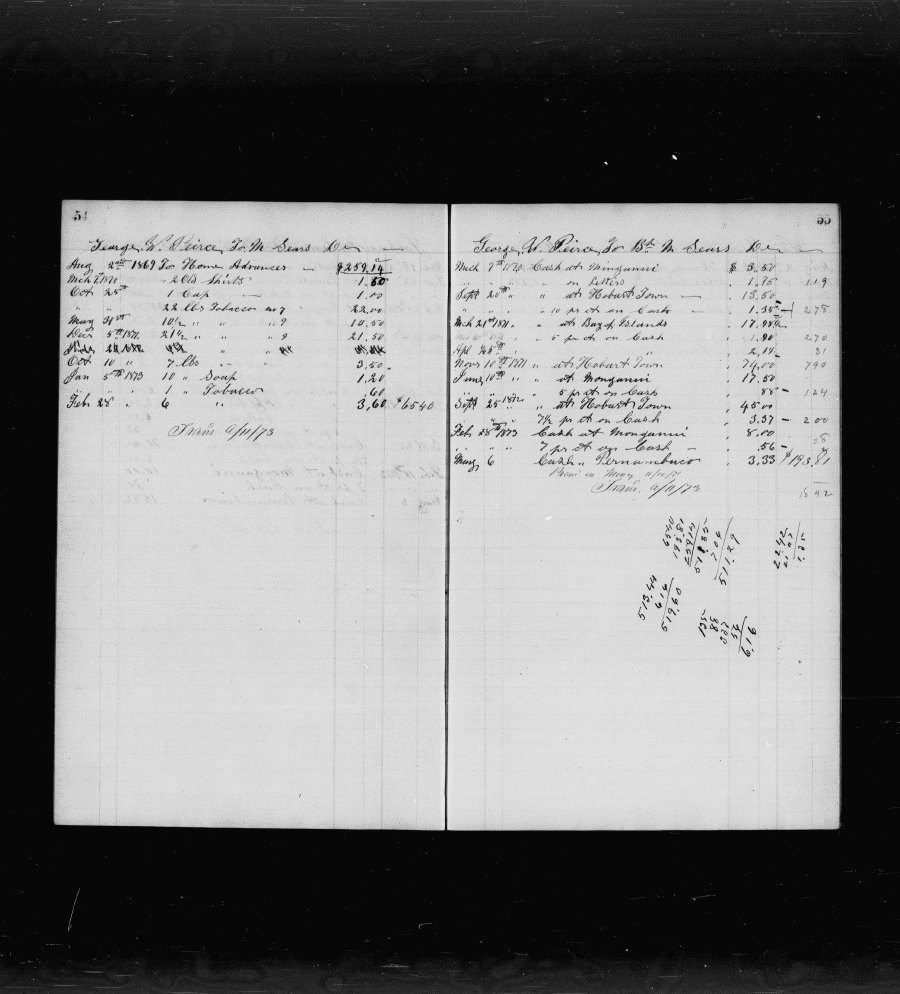 54
George W. Peirce To M Sears Dr
Aug 2nd 1869 To Home Advances $259.14
Mch 2 1870 " 2 Old Shirts 1.50
Oct 25th 1 Cap 1.00
" " 22 lbs Tobacco 22.00
May 31st 10½ " " " 10.50
Dec 5th 1871 21½ " " " 21.50
Oct 10 " 7 lbs " 3.50
Jan 5th 1873 10 " Soap 1.20
" " 1 " Tobacco .60
Feb 28 " 6 " 3.60 $65.40
Trans 9/11/73
55
George W. Peirce To Bk M Sears Dr
Mch 7th 1870 Cash at Monganui $ 3.50
" " " on Letters " 1.75 119
Sept 20th " " at Hobart Town " 13.50
" " " 10 pr ct on Cash " 1.35 275
Mch 21st 1871 " at Bay of Islands " 17.98
" 5 pr ct on Cash " 1.90 270
Apl 25th " " " 2.14 31
Novr 10th 1871 " at Hobart Town " 74.00 790
June 10th " " at Monganui " 17.50
" 5 pr ct on Cash " 88 124
Sept 25 1872 " at Hobart Town " 45.00
" " 7½ pr ct on Cash " 3.37 200
Feb 28th 1873 Cash at Monganui " 8.00
" " " 7 pr ct on Cash " .56 28
May 6 Cash " Pernambuco " 3.33 $193.81
Trans. 9/11/73
1842
6540
193.81
259.14
518.35
7.04
511.29
22.42
21.07
1.35
513.44
6.16
519.60
135
88
45
6.16